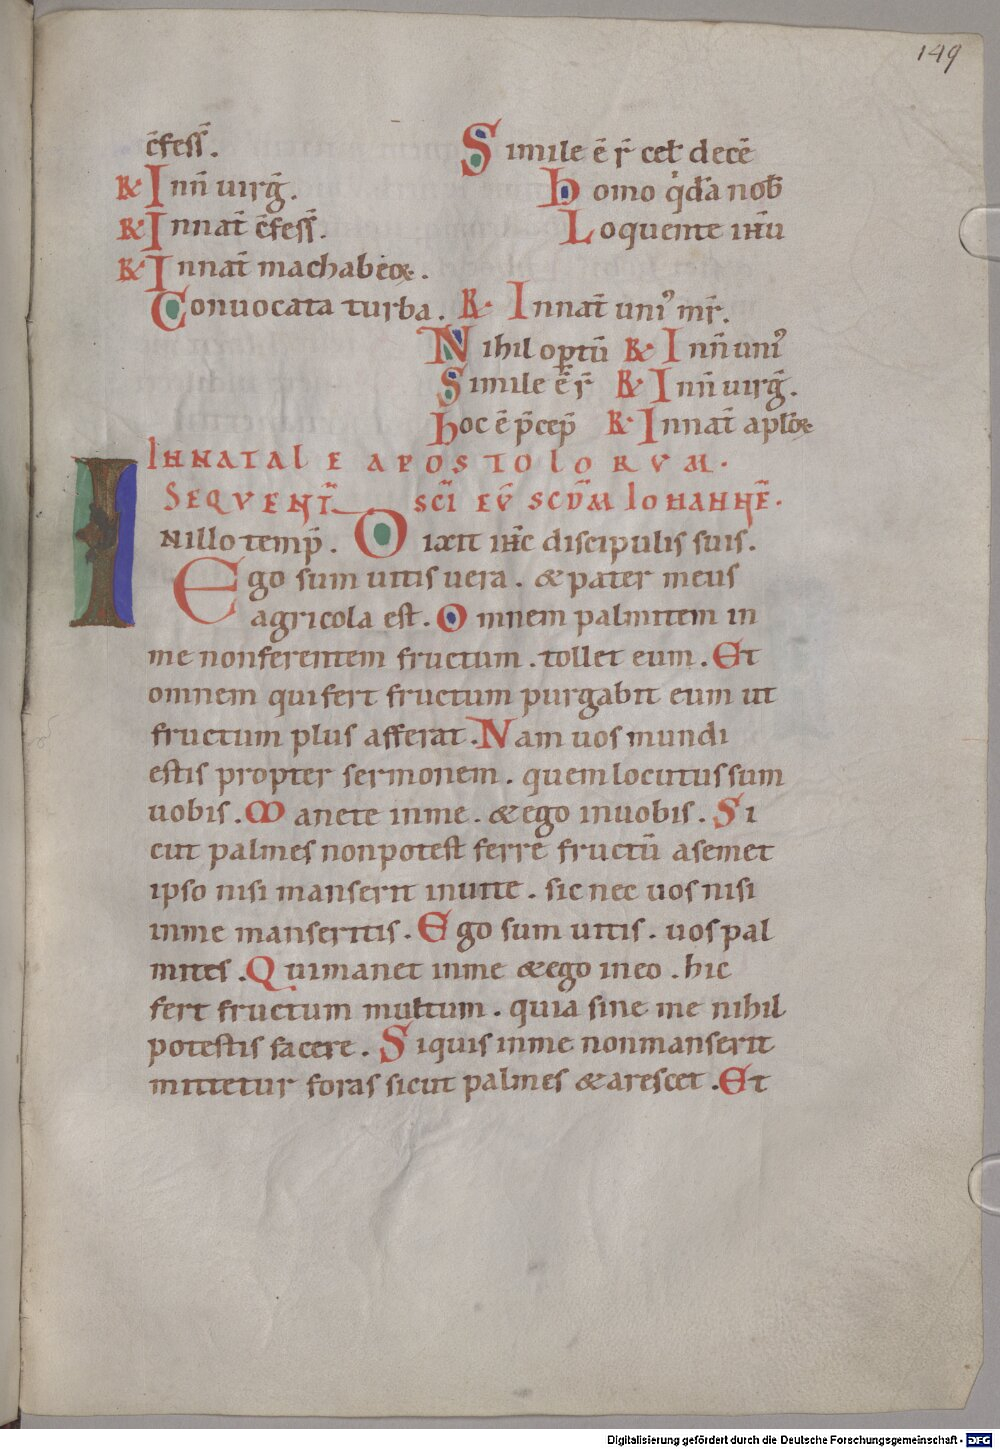 149
c̄fess̄. Simile ē r̄ cel̄ decē
R Inn̄ uirḡ. homo q̇dā nob̄
R In nat̄ c̄fess̄. Loquente ih̄u
R In nat̄ machabeoꝝ.
Conuocata turba. R In nat̄ uniꝰ mr̄.
Nihil opertū R Inn̄ uniꝰ
Simile ē r̄ R Inn̄ uirḡ.
hoc ē p̄cep̄ R In nat̄ aploꝝ
IN NATALE APOSTOLORVM.
SEQVENT̄ SC̄I EV̄ SCD̄M IOHANNĒ.
IN illo temp̄. Dixit ih̄c discipulis suis.
Ego sum uitis uera. & pater meus
agricola est. Omnem palmitem in
me non ferentem fructum. tollet eum. Et
omnem qui fert fructum purgabit eum ut
fructum plus afferat. Nam uos mundi
estis propter sermonem. quem locutus sum
uobis. Manete in me. & ego in uobis. Si
cut palmes non potest ferre fructū a semet
ipso nisi manserit in uite. sic nec uos nisi
in me manseritis. Ego sum uitis. uos pal
mites. Qui manet in me & ego in eo. hic
fert fructum multum. quia sine me nihil
potestis facere. Si quis in me non manserit
mittetur foras sicut palmes & arescet. Et
Digitalisierung gefördert durch die Deutsche Forschungsgemeinschaft - DFG